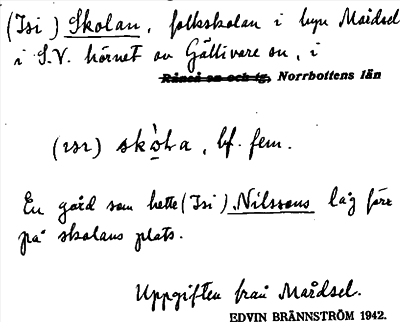 (Isi) Skolan, folkskolan i byn Mårdsel
i S.V. hörnet av Gällivare sn, i
Råneå sn och tg, Norrbottens län
(ɪsɪ) skola, bf. fem.
En gård som hette (Isi) Nilssons låg förr
på skolans plats.
Uppgiften från Mårdsel.
EDVIN BRÄNNSTRÖM 1942.